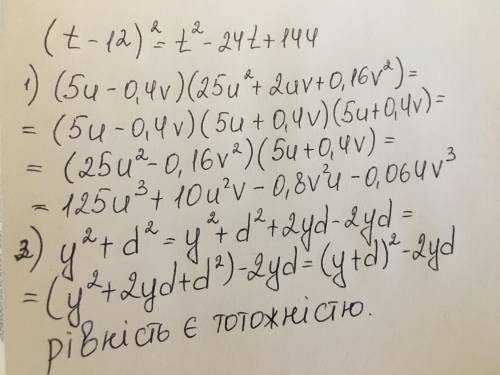 (t-12)² = t² - 24t + 144
1) (5u - 0,4v)(25u² + 2uv + 0,16v²) =
= (5u - 0,4v)(5u + 0,4v)(5u + 0,4v) =
= (25u² - 0,16v²)(5u + 0,4v) =
= 125u³ + 10u²v - 0,8v²u - 0,064v³
3) y² + d² = y² + d² + 2yd - 2yd =
= (y² + 2yd + d²) - 2yd = (y + d)² - 2yd
рівність є тотожністю.